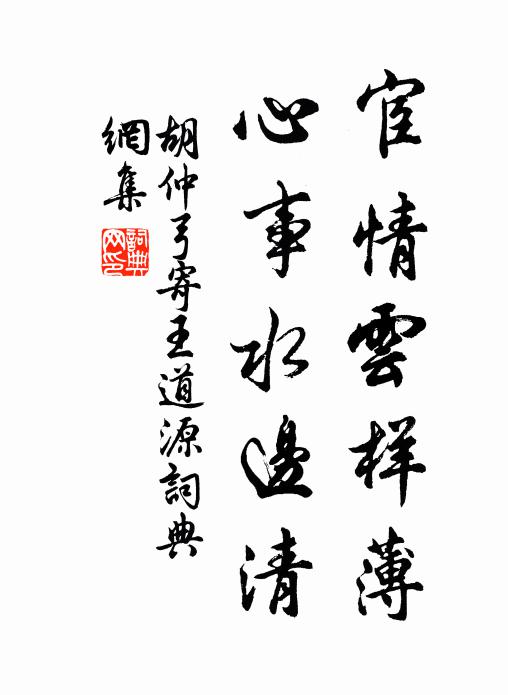 宦情雲样薄
心事水邊清
胡仲弓寄王道源詞典
網集
詞典
网印